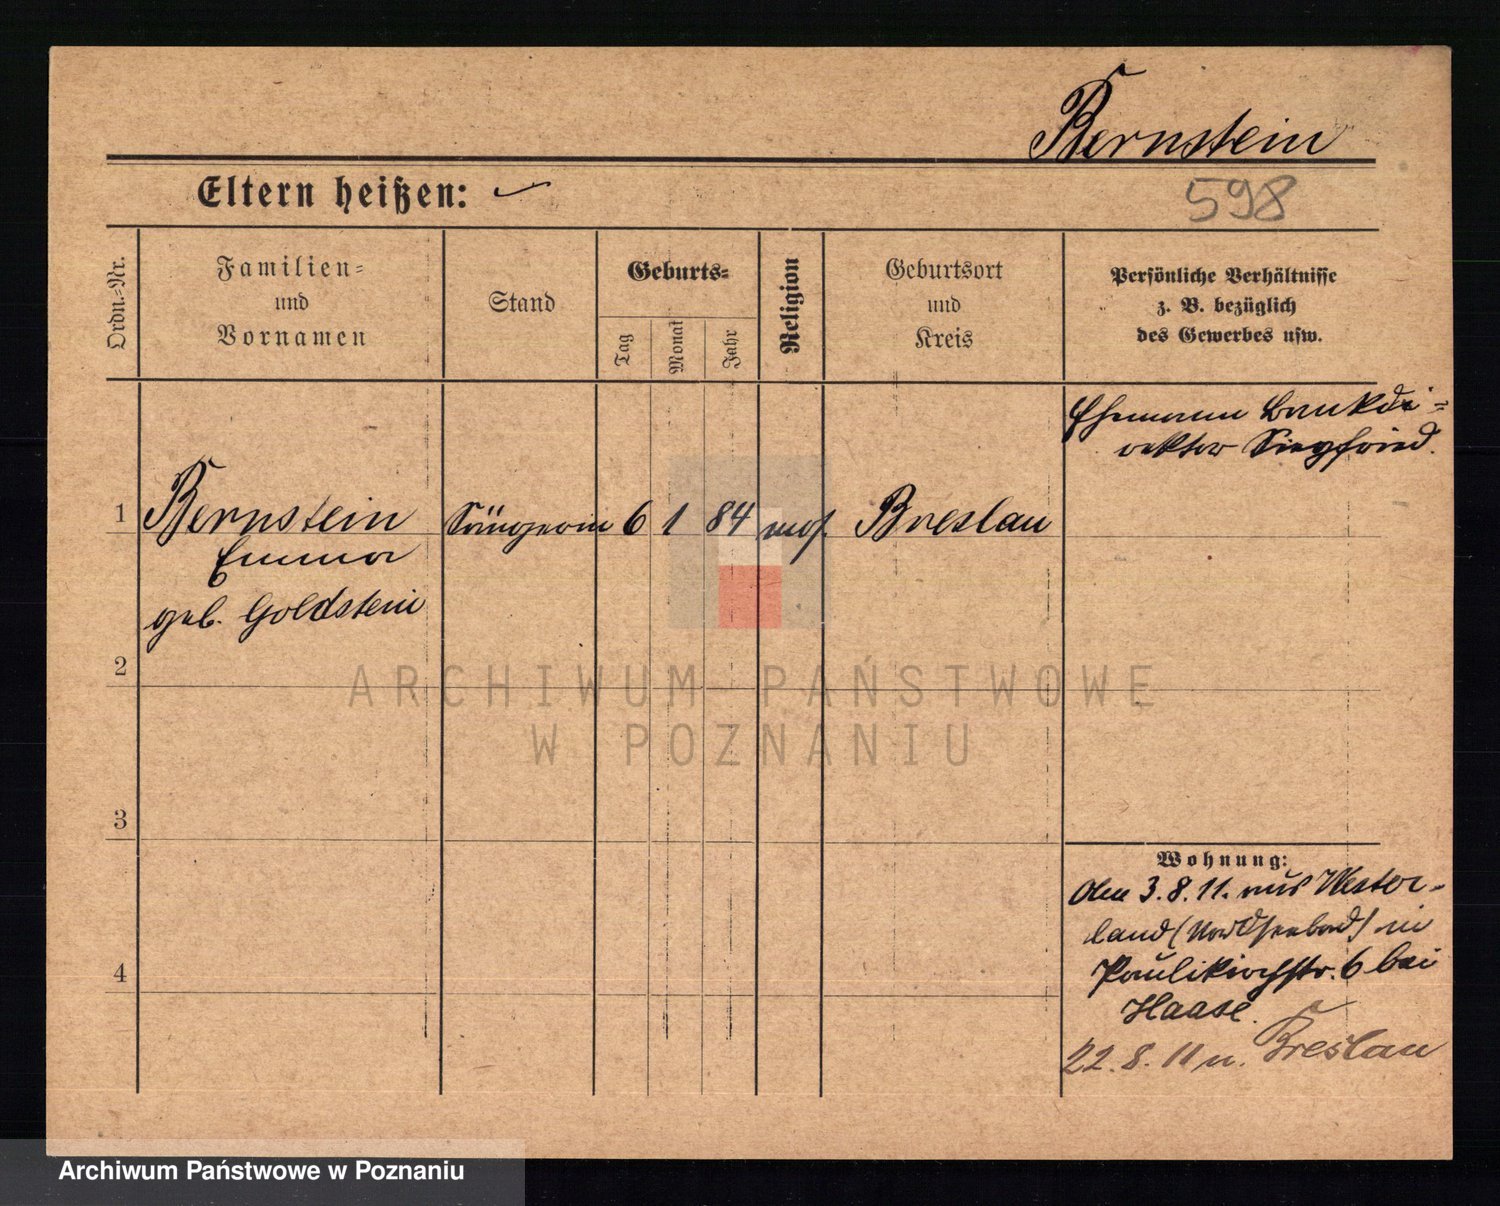 Bernstein
Eltern heißen:
598
Ordn.-Nr.
Familien-
und
Vornamen
Stand
Geburts-
Tag
Monat
Jahr
Religion
Geburtsort
und
Kreis
Persönliche Verhältnisse
z. B. bezüglich
des Gewerbes usw.
Ehemann Bankdi-
rektor Siegfried.
1 Bernstein Sängerin 6 1 84 mos. Breslau
Emma
geb. Goldstein
2
ARCHIWUM PAŃSTWOWE
W POZNANIU
3
Wohnung:
Den 3.8.11. aus Wester-
land (Nordseebad) in
4
Paulikirchstr. 6 bei
Haase.
22.8.11 n. Breslau
Archiwum Państwowe w Poznaniu